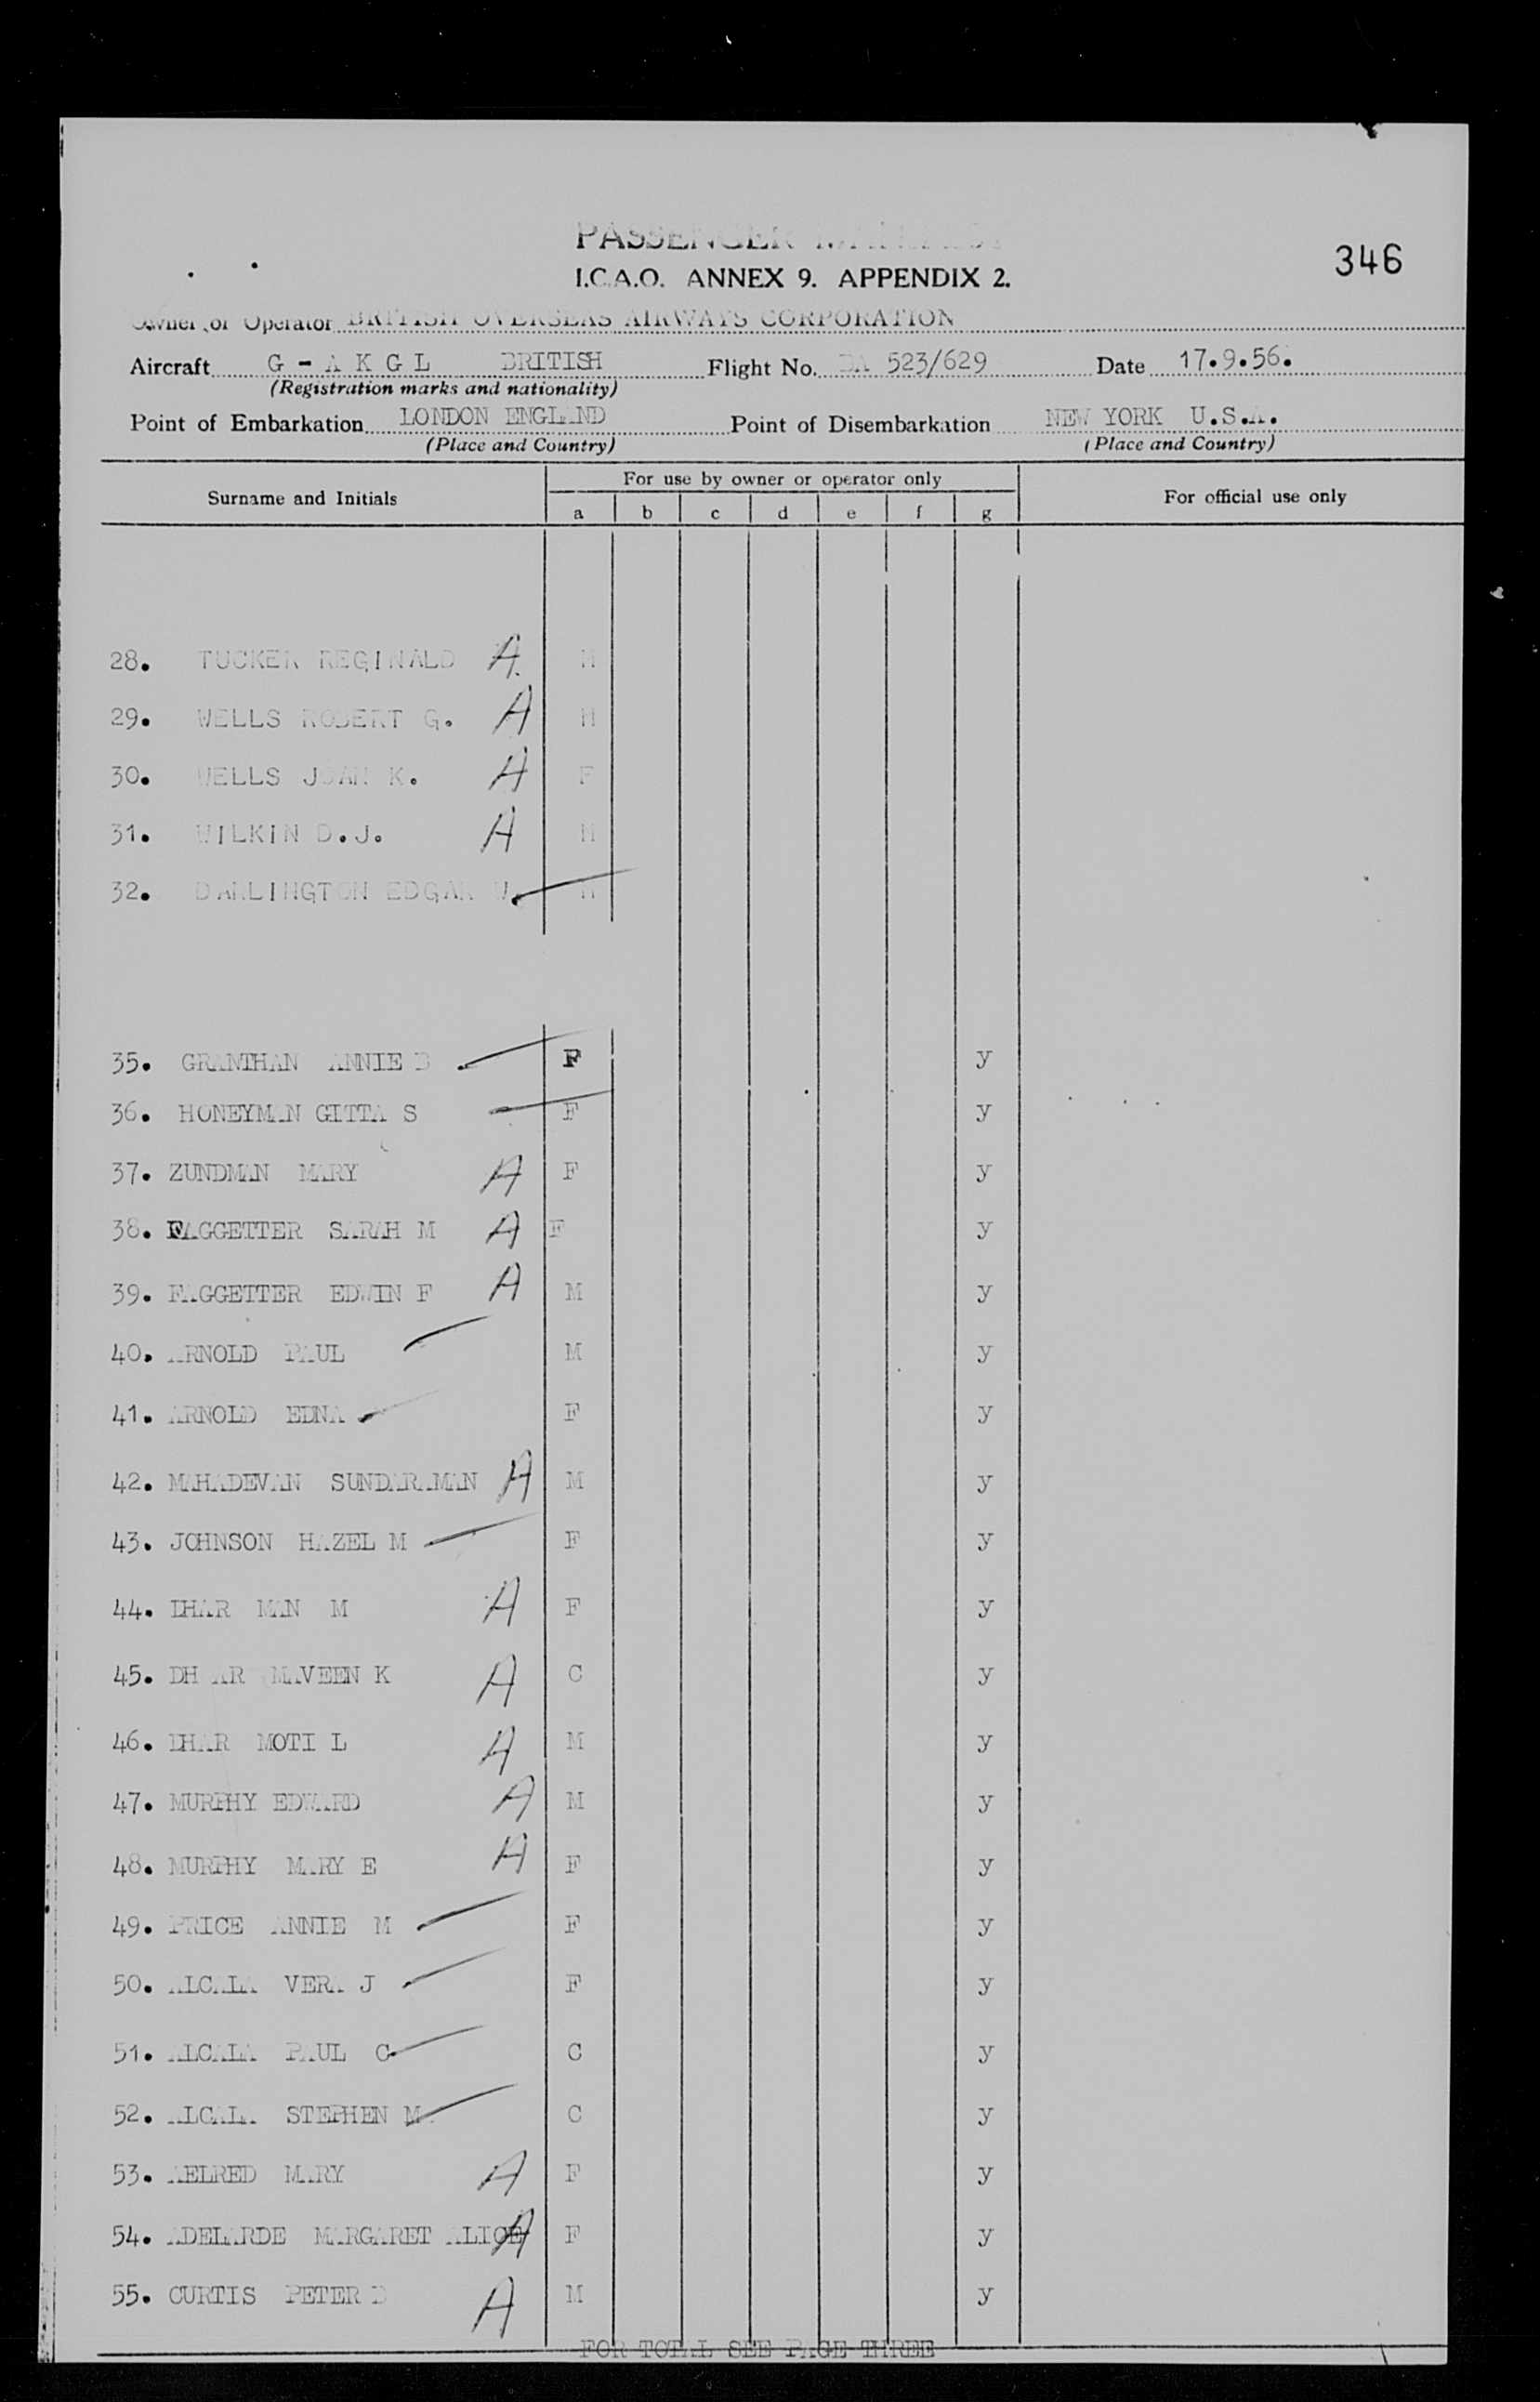 PASSENGER MANIFEST
346
I.C.A.O. ANNEX 9. APPENDIX 2.
Owner or Operator BRITISH OVERSEAS AIRWAYS CORPORATION
Aircraft G - A K G L BRITISH Flight No. BA 523/629 Date 17.9.56.
(Registration marks and nationality)
Point of Embarkation LONDON ENGLAND Point of Disembarkation NEW YORK U.S.A.
(Place and Country) (Place and Country)
Surname and Initials For use by owner or operator only For official use only
a b c d e f g
28. TUCKER REGINALD A. M
29. WELLS ROBERT G. A M
30. WELLS JOAN K. A F
31. WILKIN D.J. A M
32. DARLINGTON EDGAR W. M
35. GRANTHAN ANNIE B F y
36. HONEYMAN GITTA S F y
37. ZUNDMAN MARY A F y
38. FAGGETTER SARAH M A F y
39. FAGGETTER EDWIN F A M y
40. ARNOLD PAUL M y
41. ARNOLD EDNA F y
42. MAHADEVAN SUNDARAMAN A M y
43. JOHNSON HAZEL M F y
44. DHAR MAN M A F y
45. DHAR MAVEEN K A C y
46. DHAR MOTI L A M y
47. MURPHY EDWARD A M y
48. MURPHY MARY E A F y
49. PRICE ANNIE M F y
50. ALCALA VERA J F y
51. ALCALA PAUL C C y
52. ALCALA STEPHEN M C y
53. AELRED MARY A F y
54. ADELARDE MARGARET ALICE A F y
55. CURTIS PETER D A M y
FOR TOTAL SEE PAGE THREE